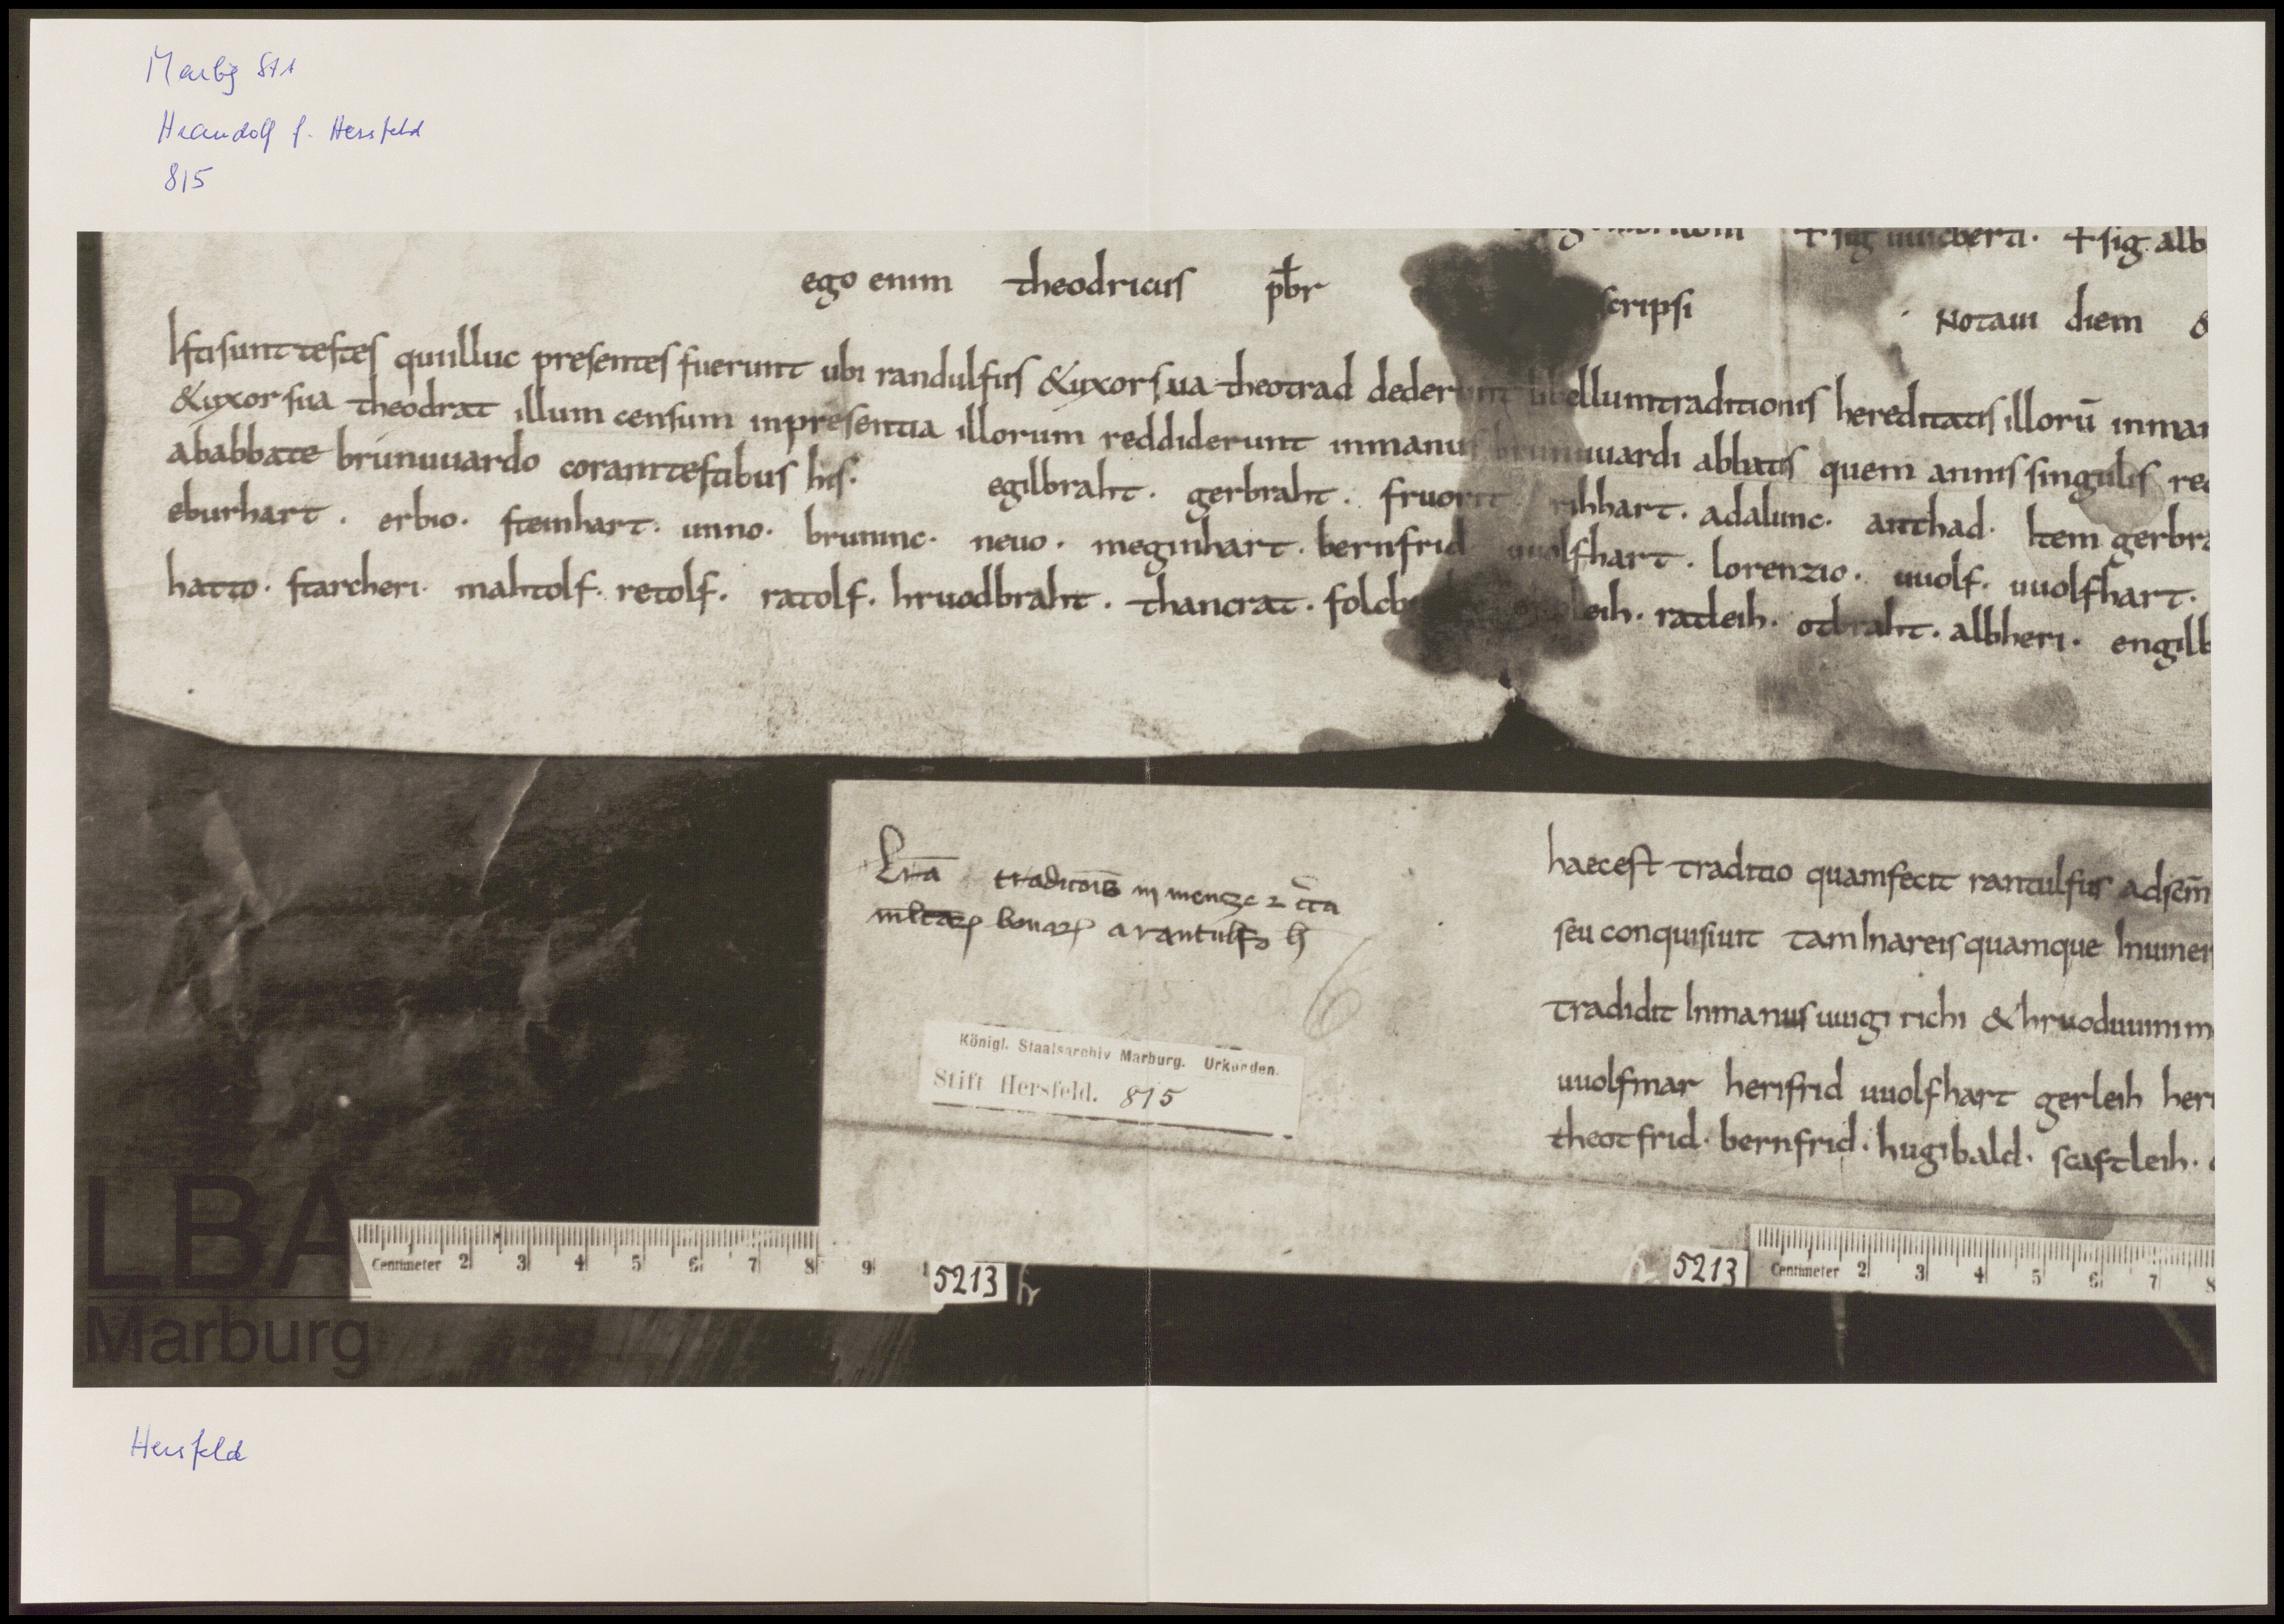 Marbg StA
Hrandolf f. Hersfeld
815
+ sig uuicberti. + sig. alb
ego enim theodricus p̄br scripsi Notaui diem &
Isti sunt testes qui illuc presentes fuerunt ubi randulfus & uxor sua theotrad dederunt libellum traditionis hereditatis illorū inman
& uxor sua theodrat illum censum in presentia illorum reddiderunt in manus brunuuardi abbatis quem annis singulis re
ab abbate brunuuardo coram testibus his. egilbraht. gerbraht. fruorit. rihhart. adalunc. anthad. Item gerbra
eburhart. erbio. steinhart. unno. bruninc. neuo. meginhart. bernfrid uuolfhart. lorenzio. uuolf. uuolfhart.
hatto. starcheri. mahtolf. retolf. ratolf. hruodbraht. thancrat. folcb leih. ratleih. otbraht. albheri. engilb
Lr̄a traditōis in mengze & cr̄a
mltarꝝ bonarꝝ a rantulfo h
6
Königl. Staatsarchiv Marburg. Urkunden.
Stift Hersfeld. 815
haec est traditio quam fecit rantulfus ad scm̄
seu conquisiuit tam In areis quamque Inuiner
tradidit In manus uuigirichi & hruoduuini m
uuolfmar herifrid uuolfhart gerleih heri
theotfrid. bernfrid. hugibald. scaftleih.
Centimeter 2 3 4 5 6 7 8 9
5213 hr
5213
Centimeter 2 3 4 5 6 7 8
LBA
Marburg
Hersfeld